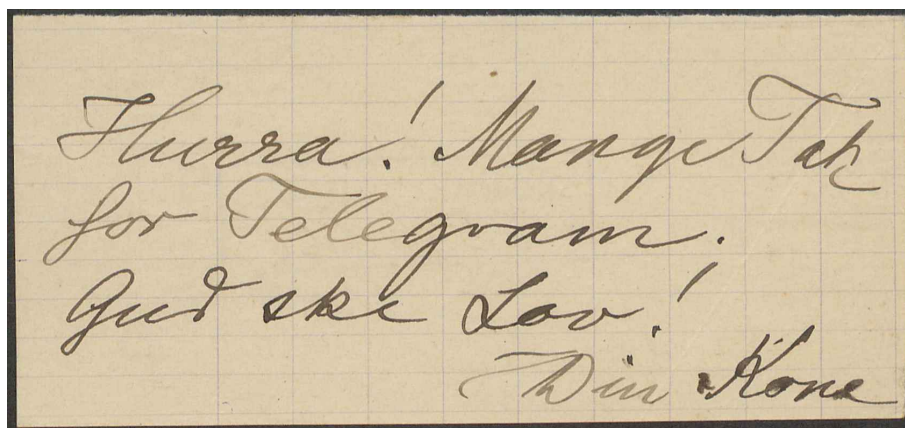 Hurra! Mange Tak
for Telegram.
Gud ske Lov!
Din Kone